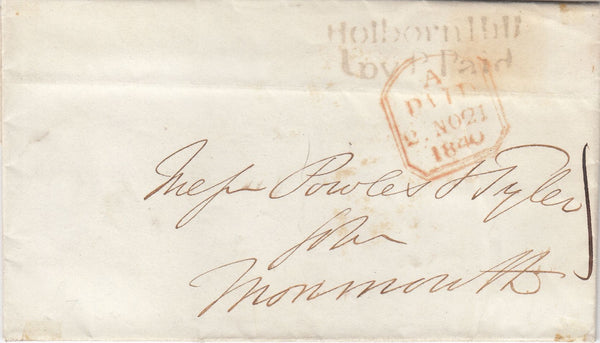 Holborn Hill
Py P Paid
A
PAID
2 NO 21
1840
Messrs Powles & Tyler
Solrs
Monmouth